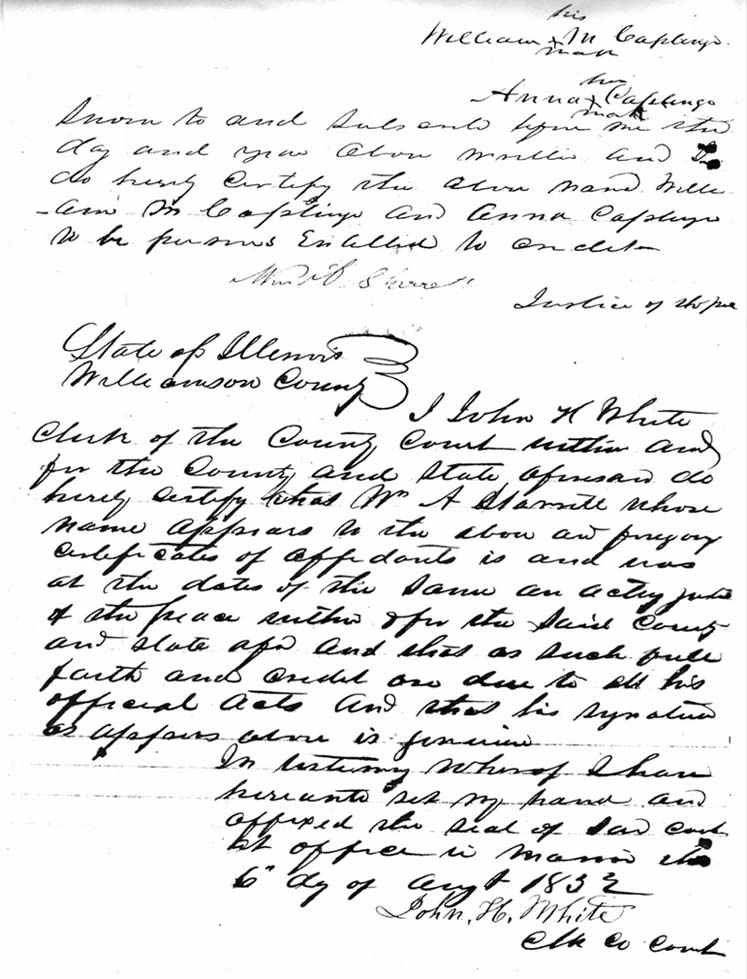 his
William x M Caplinge
mark
her
Anna x Caplinge
mark
Sworn to and Subscribd before me the
day and year above written and I
do hereby Certify the above namd Willi
-am M Caplinge and Anna Caplinge
to be persons Entitled to credit
Justice of the peace
State of Illinois
Williamson County
I John H White
Clerk of the County Court within and
for the County and State aforesaid do
hereby certify that Wm A Starrett whose
name appears to the above and foregoing
Certificates of affidavits is and was
at the dates of the Same an acting justice
of the peace within & for the Said County
and State afsd and that as such full
faith and credit are due to all his
official acts and that his signature
as appears above is genuine
In testimony whereof I have
hereunto set my hand and
affixed the seal of said court
at office in Marion this
6" day of Augt 1852
John, H. White
Clk Co Court